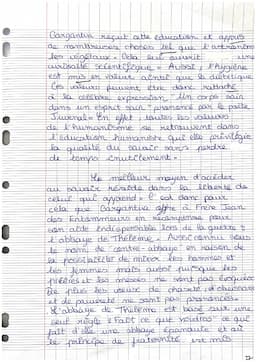 Gargantua reçut cette education et appris
de nombreuses choses tel que l'astronomie
les végétaux. Cela lui ouvrit une
curiosité scientifique. Aussi, l'Hygiène
est mis en valeur ainsi que la diététique.
Ces valeurs peuvent être donc rattaché
à la célèbre expression, Un corps sain
dans un esprit sain" prononcé par le poète
Juvénal. En effet, toutes les valeurs
de l'humanisme se retrouvent dans
l'éducation Humaniste qui elle privilégie
la qualité du savoir sans perdre
de temps inutilement.
Le meilleur moyen d'accéder
au savoir réside dans la liberté de
celui qui apprend. C'est donc pour
cela que Gargantua offre à Frère Jean
des Entommeures en récompense pour
son aide indispensable lors de la guerre :
l'abbaye de Thélème. Aussi connu sous
le nom de contre-abbaye en raison de
la possibilité de mixer les hommes et
les femmes mais aussi puisque les
prières et les messes ne sont pas évoquées
De plus les voeux de chasteté, d'obéissance
et de pauvreté ne sont pas prononcés.
L'abbaye de Thélème est basé sur une
seul règle : Fait ce que voudras ce qui
fait d'elle une abbaye épanouie et où
le principe de fraternité est mis